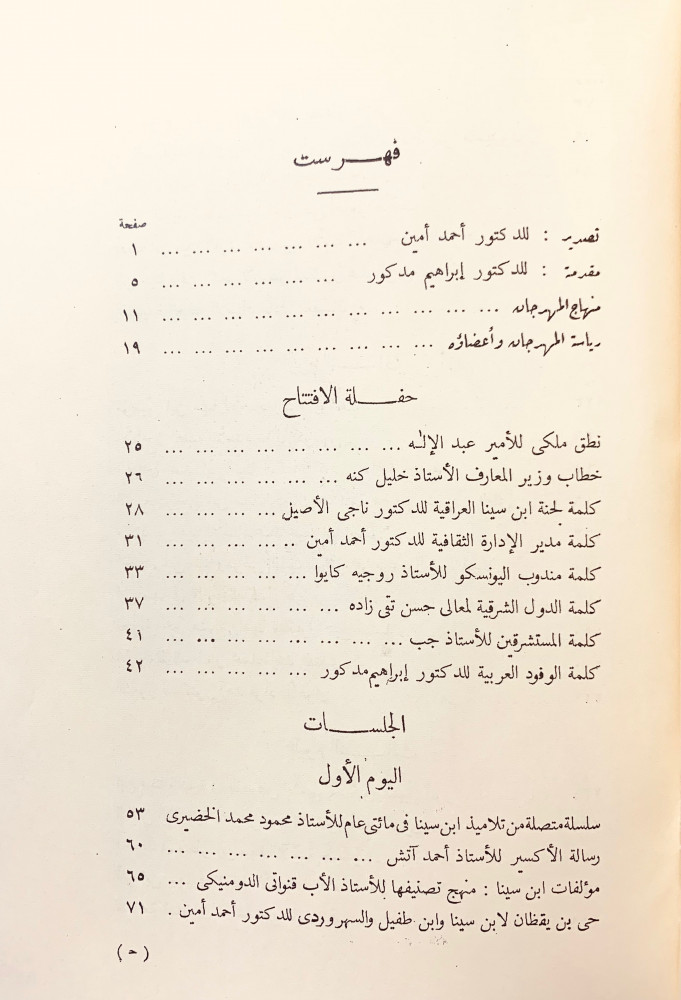 فهرست
صفحة
تصدير : للدكتور أحمد أمين ... ... ... ... ... ... ... ١
مقدمة : للدكتور إبراهيم مدكور ... ... ... ... ... ... ٥
منهاج المهرجان ... ... ... ... ... ... ... ... ... ... ... ١١
رياسة المهرجان وأعضاؤه ... ... ... ... ... ... ... ... ... ١٩
حفلة الافتتاح
نطق ملكى للأمير عبد الإله ... ... ... ... ... ... ... ... ٢٥
خطاب وزير المعارف الأستاذ خليل كنه ... ... ... ... ... ... ٢٦
كلمة لجنة ابن سينا العراقية للدكتور ناجى الأصيل ... ... ... ... ٢٨
كلمة مدير الإدارة الثقافية للدكتور أحمد أمين .. ... ... ... ... ٣١
كلمة مندوب اليونسكو للأستاذ روجيه كايوا ... ... ... ... ... ٣٣
كلمة الدول الشرقية لمعالى حسن تقى زاده ... ... ... ... ... ... ٣٧
كلمة المستشرقين للأستاذ جب ... ... ... ... ... ... ... ... ٤١
كلمة الوفود العربية للدكتور إبراهيم مدكور ... ... ... ... ... ٤٢
الجلسات
اليوم الأول
سلسلة متصلة من تلاميذ ابن سينا فى مائتى عام للأستاذ محمود محمد الخضيرى ٥٣
رسالة الأكسير للأستاذ أحمد آتش ... ... ... ... ... ... ... ٦٠
مؤلفات ابن سينا : منهج تصنيفها للأستاذ الأب قنواتى الدومنيكى ... ٦٥
حى بن يقظان لابن سينا وابن طفيل والسهروردى للدكتور أحمد أمين . ٧١